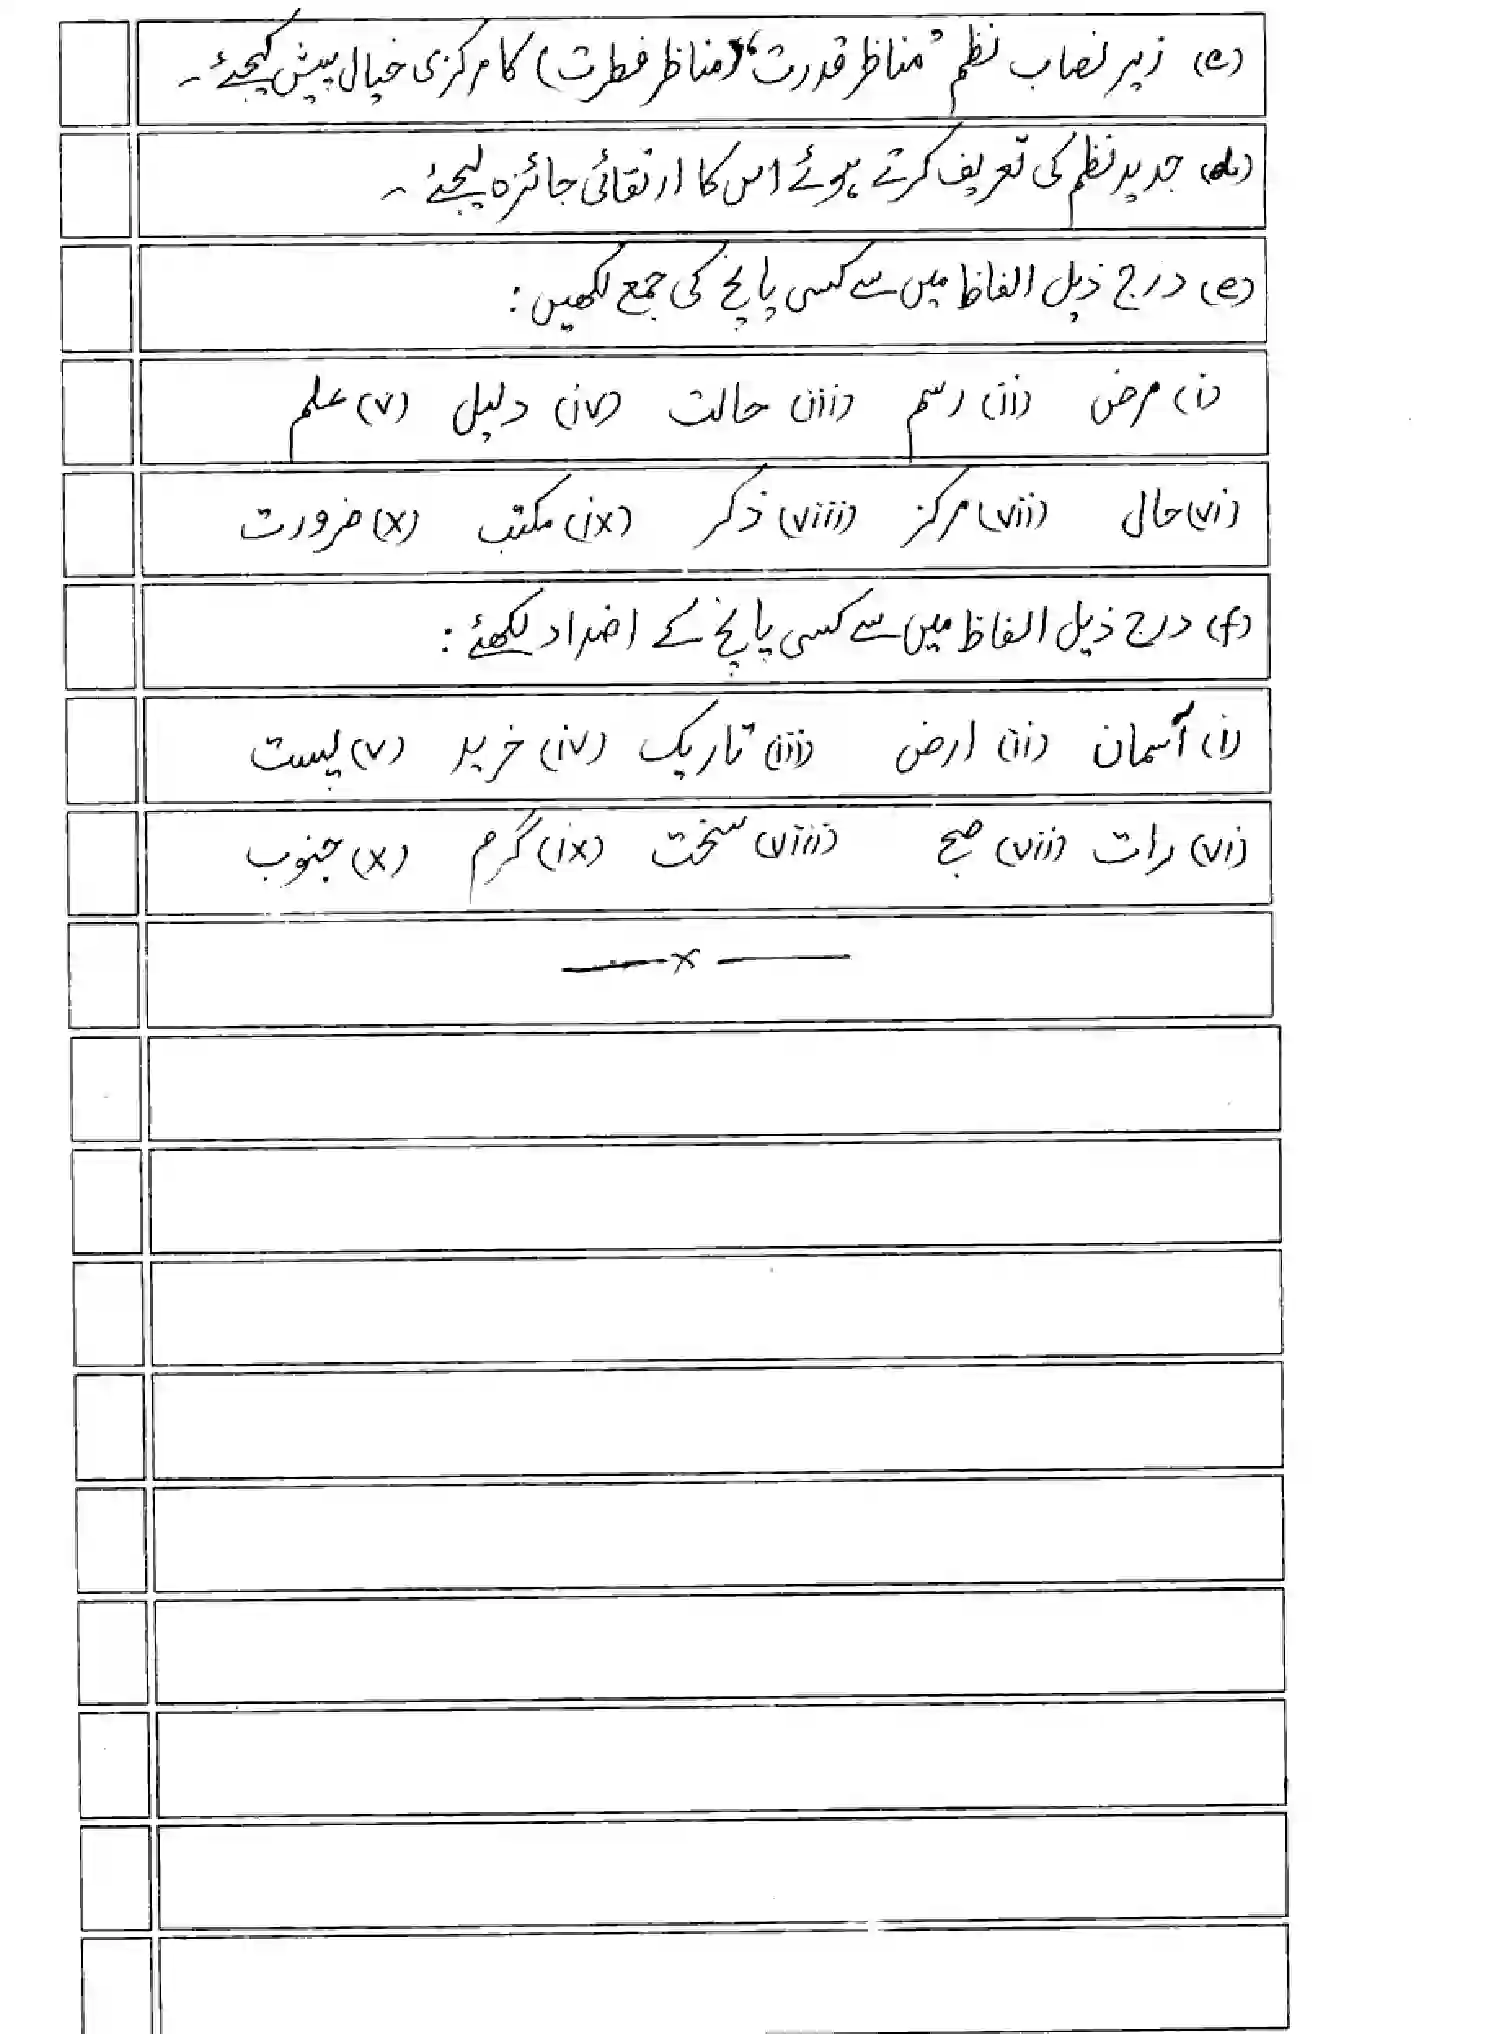 (c) زیر نصاب نظم "مناظر قدرت" (مناظر فطرت) کا مرکزی خیال پیش کیجئے۔
(d) جدید نظم کی تعریف کرتے ہوئے اس کا ارتقائی جائزہ لیجئے۔
(e) درج ذیل الفاظ میں سے کسی پانچ کی جمع لکھیں:
(i) مرض (ii) رسم (iii) حالت (iv) دلیل (v) علم
(vi) حال (vii) مرکز (viii) ذکر (ix) مکتب (x) ضرورت
(f) درج ذیل الفاظ میں سے کسی پانچ کے اضداد لکھئے:
(i) آسمان (ii) ارض (iii) تاریک (iv) خرید (v) پست
(vi) رات (vii) صبح (viii) سخت (ix) گرم (x) جنوب
—x—